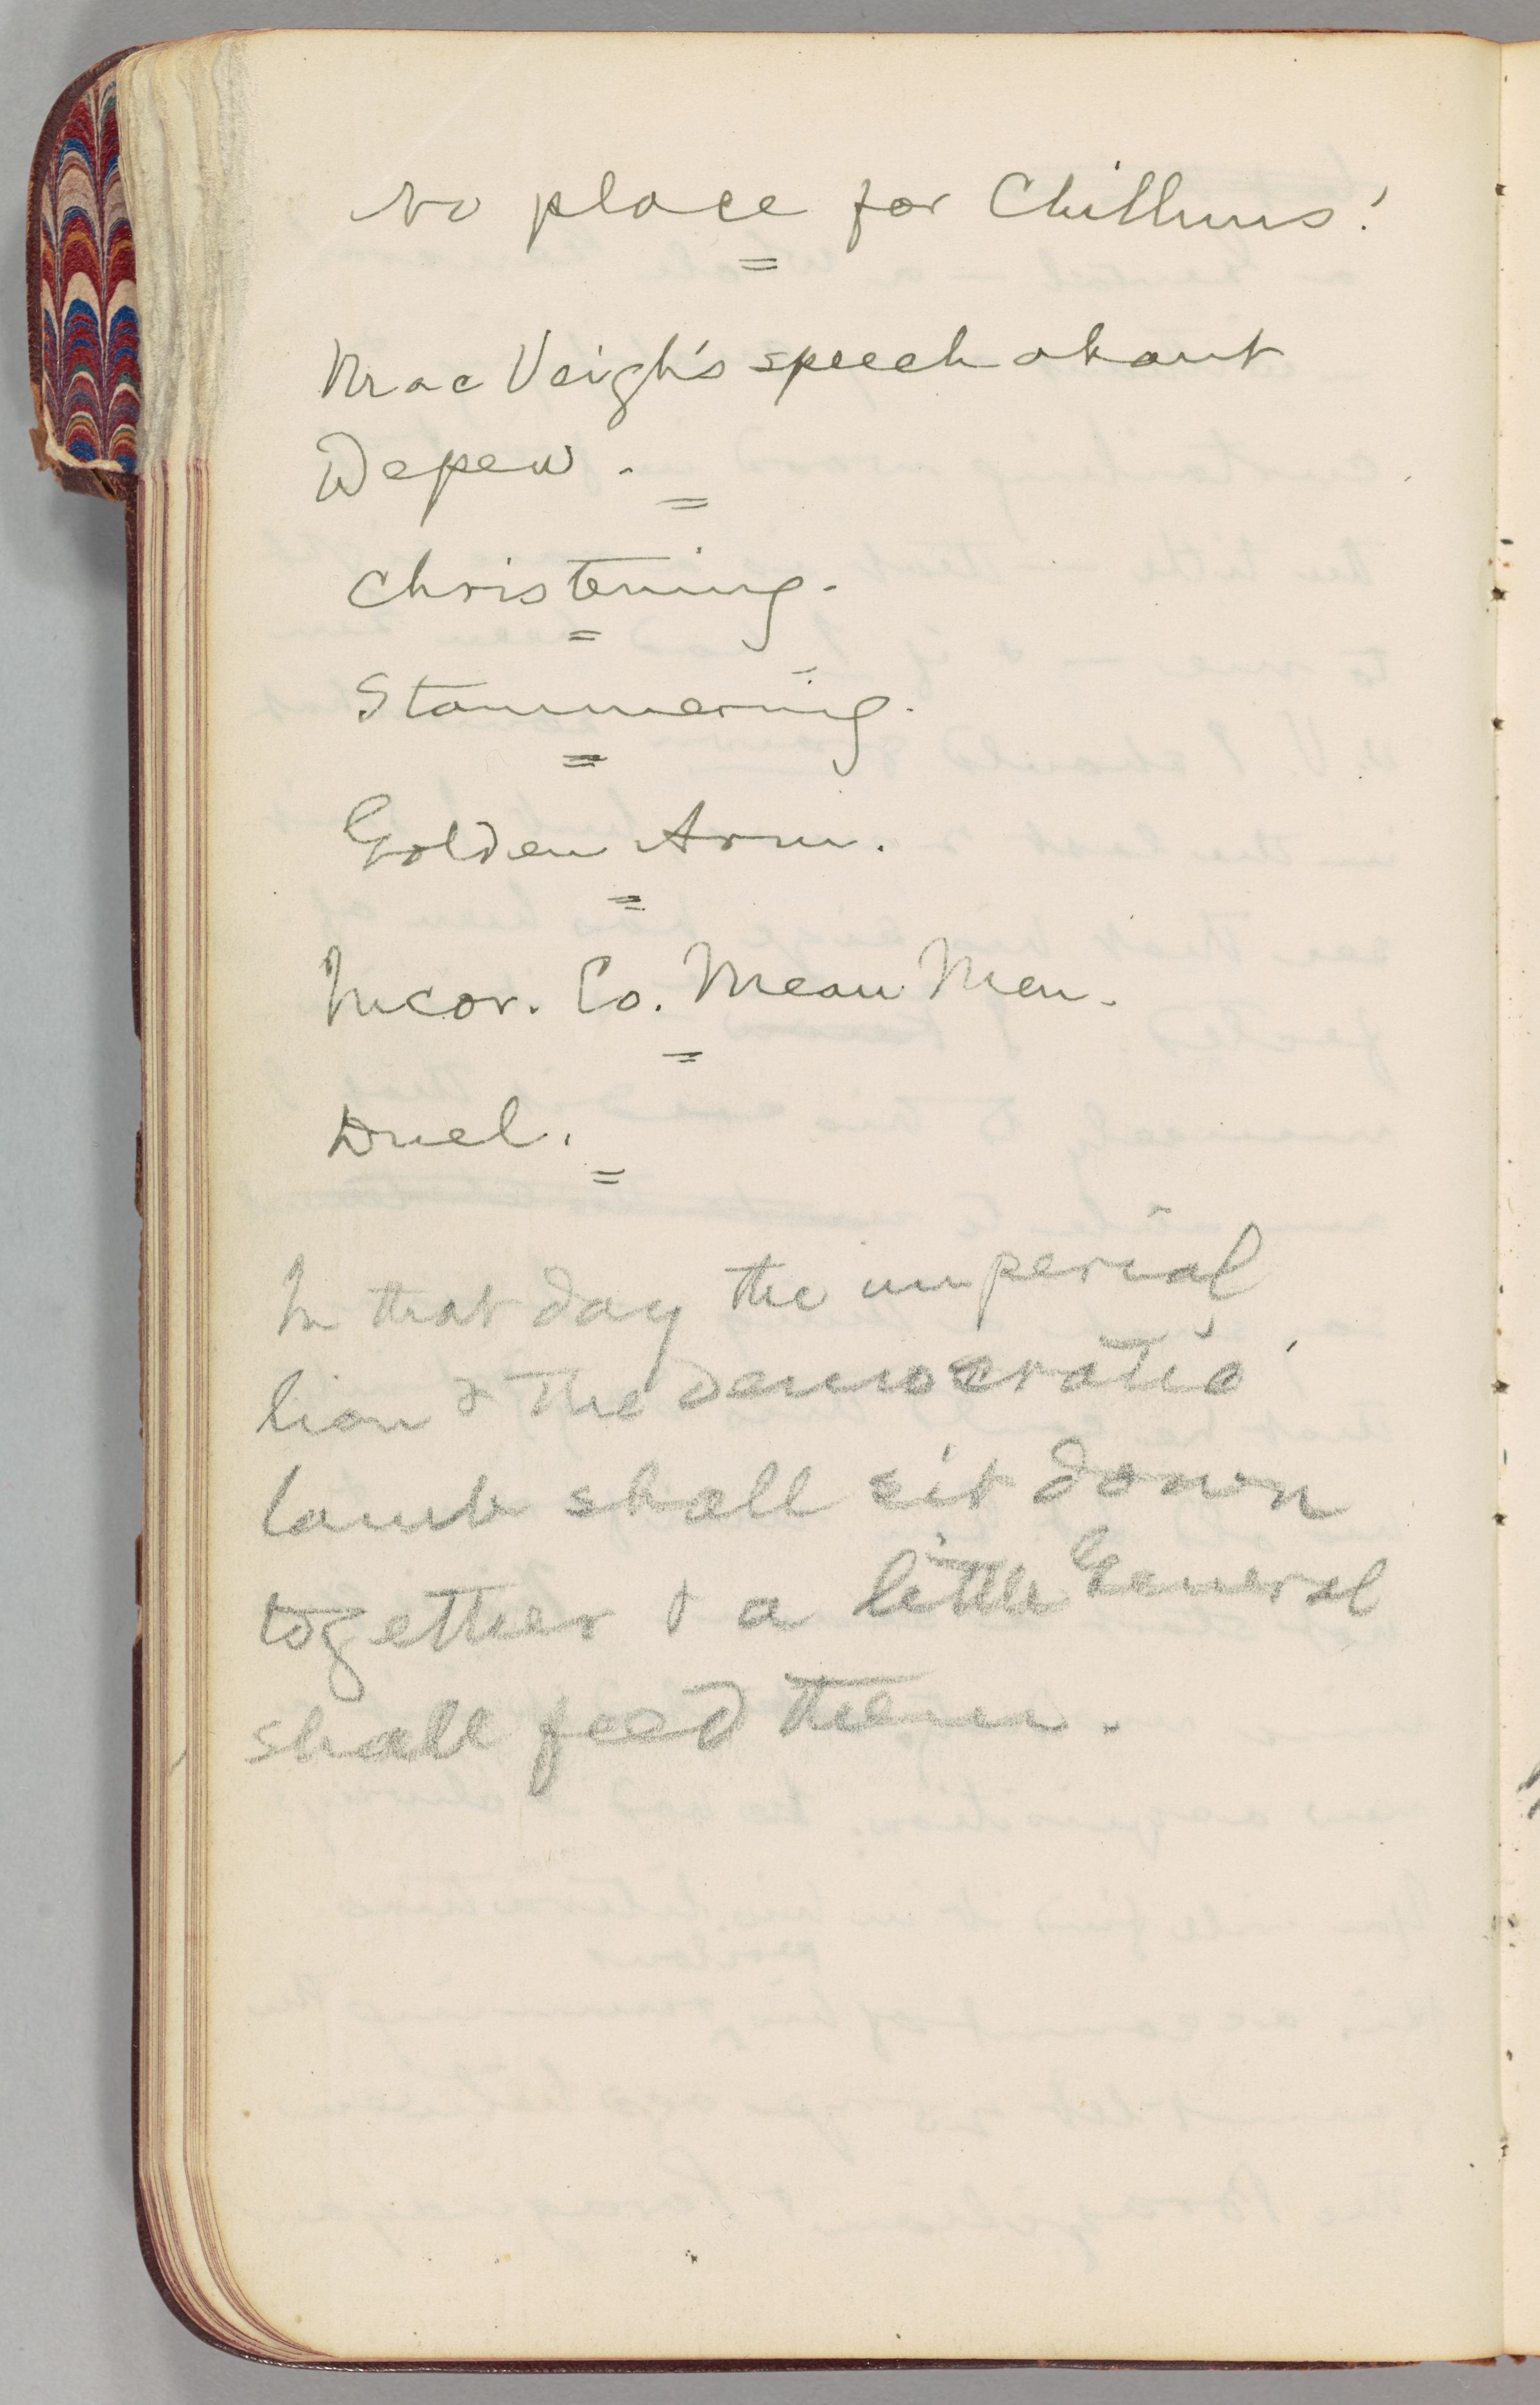 No place for Chilluns!
=
MacVeigh's speech about
Depew.
=
Christening.
=
Stammering.
=
Golden Arm.
=
Incor. Co. Mean Men.
=
Duel.
=
In that day the imperial
lion & the democratic
lamb shall sit down
together & a little General
shall feed them.